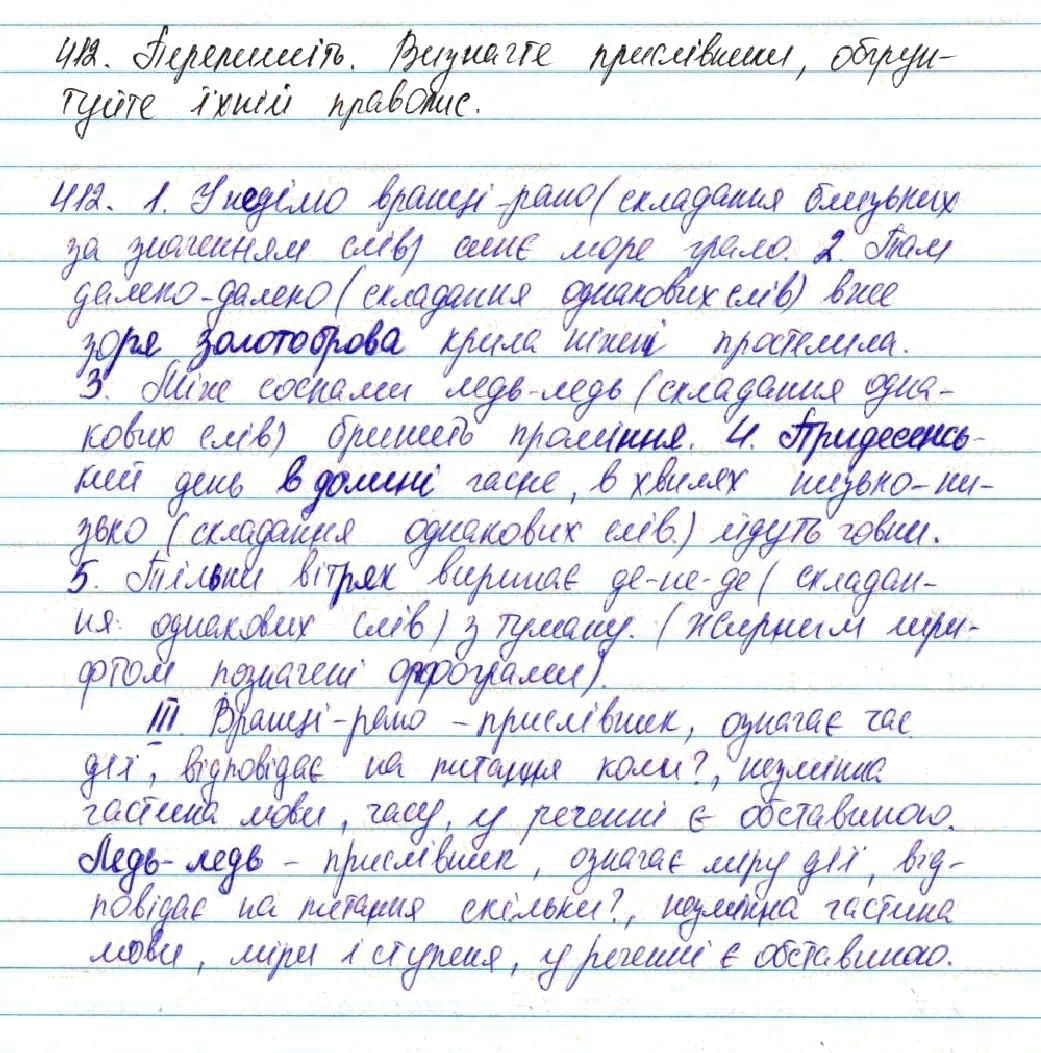 412. Перепишіть. Визначте прислівники, обґрун-
туйте їхній правопис.
412. 1. У неділю вранці-рано (складання близьких
за значенням слів) синє море грало. 2. Там
далеко-далеко (складання однакових слів) вже
зоря золотоброва крила ніжні простелила.
3. Між соснами ледь-ледь (складання одна-
кових слів) бринить проміння. 4. Придесенсь-
кий день в долині гасне, в хвилях низько-ни-
зько (складання однакових слів) йдуть човни.
5. Тільки вітряк виринає де-не-де (складан-
ня однакових слів) з туману. (Жирним шри-
фтом позначені орфограми).
III. Вранці-рано – прислівник, означає час
дії, відповідає на питання коли?, незмінна
частина мови, часу, у реченні є обставиною.
Ледь-ледь – прислівник, означає міру дії, від-
повідає на питання скільки?, незмінна частина
мови, міри і ступеня, у реченні є обставиною.